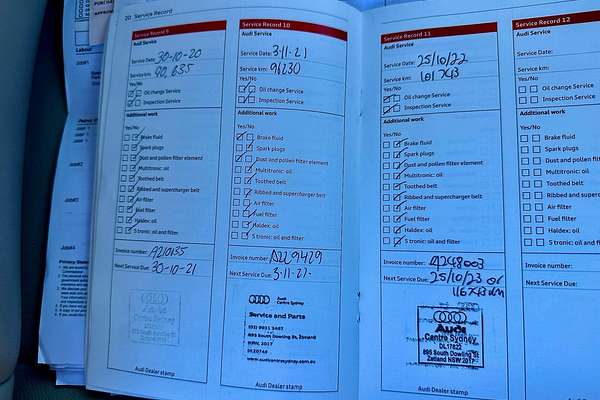 20 Service Record
Service Record 9
Audi Service
Service Date: 30-10-20
Service km: 90,835
Yes/No
Oil change Service
Inspection Service
Additional work
Yes/No
Brake fluid
Spark plugs
Dust and pollen filter element
Multitronic: oil
Toothed belt
Ribbed and supercharger belt
Air filter
Fuel filter
Haldex: oil
S tronic: oil and filter
Invoice number: A210135
Next Service Due: 30-10-21
Audi Dealer stamp
Service Record 10
Audi Service
Service Date: 3-11-21
Service km: 91230
Yes/No
Oil change Service
Inspection Service
Additional work
Yes/No
Brake fluid
Spark plugs
Dust and pollen filter element
Multitronic: oil
Toothed belt
Ribbed and supercharger belt
Air filter
Fuel filter
Haldex: oil
S tronic: oil and filter
Invoice number: A229429
Next Service Due: 3-11-21
Audi
Centre Sydney
Service and Parts
895 South Dowling St, Zetland
NSW, 2017
www.audicentresydney.com.au
Audi Dealer stamp
Service Record 11
Audi Service
Service Date: 25/10/22
Service km: 101743
Yes/No
Oil change Service
Inspection Service
Additional work
Yes/No
Brake fluid
Spark plugs
Dust and pollen filter element
Multitronic: oil
Toothed belt
Ribbed and supercharger belt
Air filter
Fuel filter
Haldex: oil
S tronic: oil and filter
Invoice number: A248003
Next Service Due: 25/10/23 or
116743km
Audi
Centre Sydney
DL17822
895 South Dowling St
Zetland NSW 2017
Audi Dealer stamp
Service Record 12
Audi Service
Service Date:
Service km:
Yes/No
Oil change Service
Inspection Service
Additional work
Yes/No
Brake fluid
Spark plugs
Dust and pollen fi
Multitronic: oil
Toothed belt
Ribbed and super
Air filter
Fuel filter
Haldex: oil
S tronic: oil and fi
Invoice number:
Next Service Due: